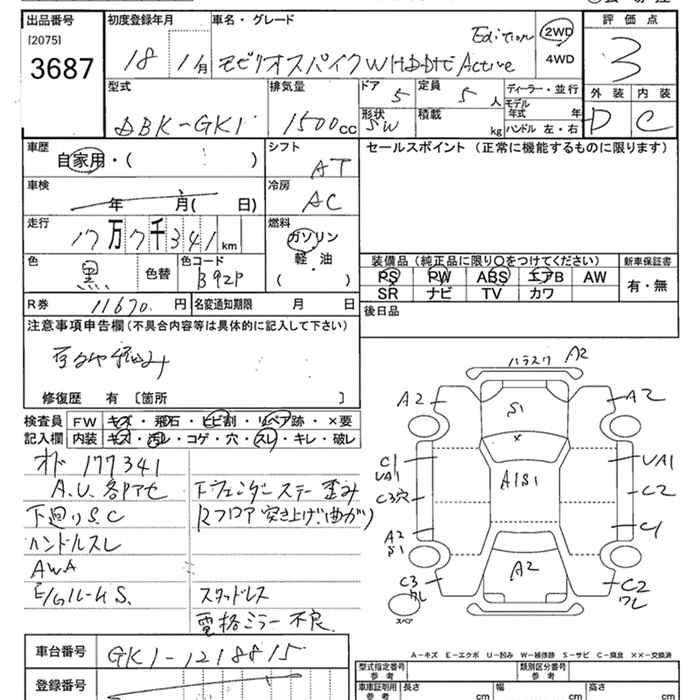 出品番号
[2075]
3687
初度登録年月
18 11月
車名・グレード
モビリオスパイク W HDDナビ Active
Edition
2WD
4WD
評価点
3
外装 内装
D C
型式
DBK-GK1
排気量
1500cc
ドア 5
形状 SW
定員 5 人
積載 kg
ディーラー・並行
モデル年式 年
ハンドル 左・右
車歴
自家用・( )
シフト
AT
セールスポイント (正常に機能するものに限ります)
車検
年 月( 日)
冷房
AC
走行
17万7千341km
燃料
ガソリン
軽・油
( )
色
黒
色替
色コード
B92P
装備品 (純正品に限り○をつけてください)
新車保証書
PS PW ABS エアB AW
SR ナビ TV カワ
有・無
R券 11670円
名変通知期限 月 日
後日品
注意事項申告欄 (不具合内容等は具体的に記入して下さい)
修復歴 有 [箇所 ]
検査員
記入欄
FW キズ・飛石・ヒビ割・リペア跡・×要
内装 キズ・汚レ・コゲ・穴・スレ・キレ・破レ
オド 177341
A.U.各部アセ
下廻りS.C
ハンドルスレ
AWA
E/Gルーム S.
Fフェンダーステー歪み
Rフロア突き上げ・曲がり
スタッドレス
電格ミラー不良
ハラスク A2
A2
S1
A2
C1
UA1
×
UA1
C3穴
A1S1
C2
A2
S1
C1
A2
C3
ワレ
C2
ワレ
スペア
A-キズ E-エクボ U-凹み W-補修跡 S-サビ C-腐食 ××-交換済
車台番号
GK1-1218815
登録番号
型式指定番号
参考
類別区分番号
参考
車車証明用
参考
長さ cm
幅 cm
高さ cm